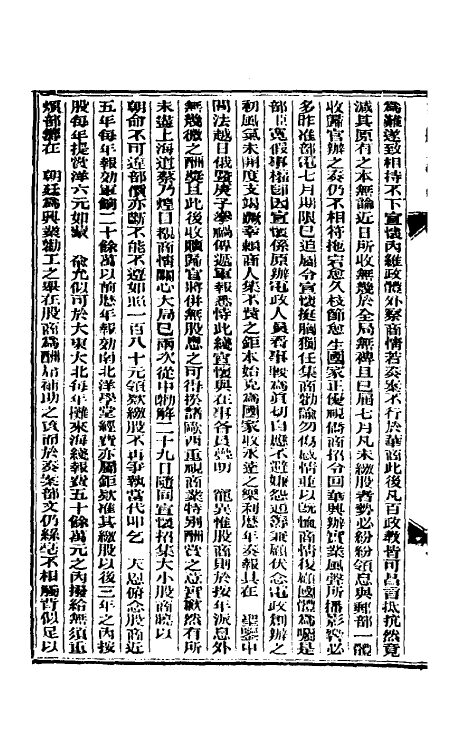 為難遂致相持不下宣懷內維政體外察商情若奏案不行於華商此後凡百政教皆可昌言抵抗然竟
減其原有之本無論近日所收無幾於全局無裨且已屆七月凡未繳股者勢必紛紛領息與郵部一體
收歸官辦之奏仍不相符拖宕愈久枝節愈生國家正優視僑商招令回華興辦實業風聲所播影響必
多昨准部電七月期限已迫屬令宣懷挺胸獨任集商勸諭勿傷感情並以既恤商情復顧國體為囑是
部臣寬假事權即因宣懷係原辦電政人員看事較為真切自應不避嫌怨通籌兼顧伏念電政創辦之
初風氣未開度支竭蹶幸賴商人集不貲之鉅本始克為國家收永遠之樂利歷年奏報具在 聖鑒中
間法越日俄暨庚子拳禍傳遞軍報悉恃此綫宣懷與在事各員疊朝 寵異惟股商則於按年派息外
無幾微之酬獎且此後收贖歸官將併無股應之可得揆諸歐西重視商業特別酬賞之意實歉然有所
未盡上海道蔡乃煌日覩商情關心大局已兩次從中勸解二十九日隨同宣懷招集大小股商曉以
朝命不可違部價亦斷不能不遵如照一百八十元領款繳股不再爭執當代叩乞 天恩俯念股商近
五年每年報効軍餉二十餘萬以前歷年報効南北洋學堂經費亦屬鉅欵准其繳股以後三年之內按
股每年提賞洋六元如蒙 俞允似可於大東大北每年攤來海綫報費五十餘萬元之內撥給無須重
煩部籌在 朝廷為興業勸工之舉在股商為酬庸補助之資而於奏案部文仍絲毫不相觸背似足以